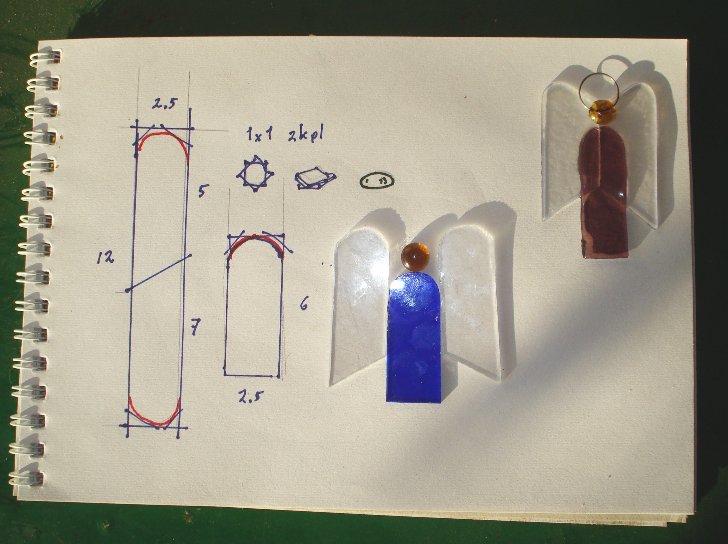 2.5
1x1 2kpl
5
12
6
7
2.5